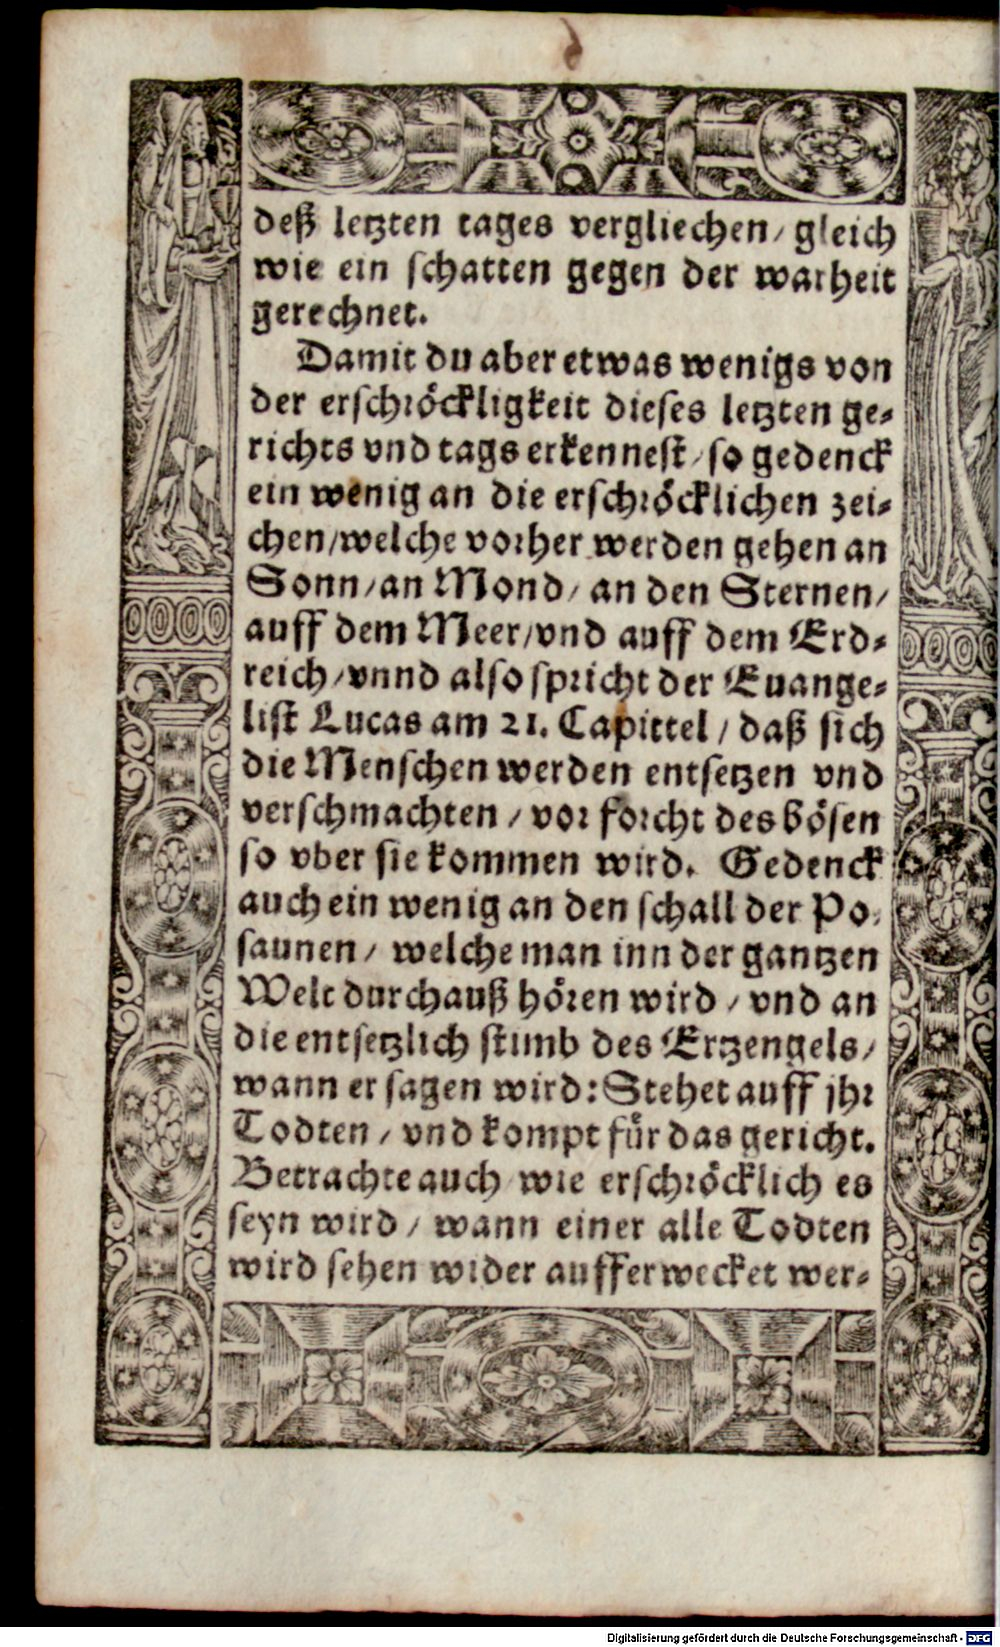 deß letzten tages vergliechen/ gleich
wie ein schatten gegen der warheit
gerechnet.
Damit du aber etwas wenigs von
der erschröckligkeit dieses letzten ge-
richts vnd tags erkennest/ so gedenck
ein wenig an die erschröcklichen zei-
chen/welche vorher werden gehen an
Sonn/an Mond/ an den Sternen/
auff dem Meer/vnd auff dem Erd-
reich/vnnd also spricht der Euange-
list Lucas am 21. Capittel / daß sich
die Menschen werden entsetzen vnd
verschmachten / vor forcht des bösen
so vber sie kommen wird. Gedenck
auch ein wenig an den schall der Po-
saunen / welche man inn der gantzen
Welt durchauß hören wird / vnd an
die entsetzlich stimb des Ertzengels/
wann er sagen wird: Stehet auff jhr
Todten / vnd kompt für das gericht.
Betrachte auch wie erschröcklich es
seyn wird / wann einer alle Todten
wird sehen wider aufferwecket wer-
Digitalisierung gefördert durch die Deutsche Forschungsgemeinschaft - DFG